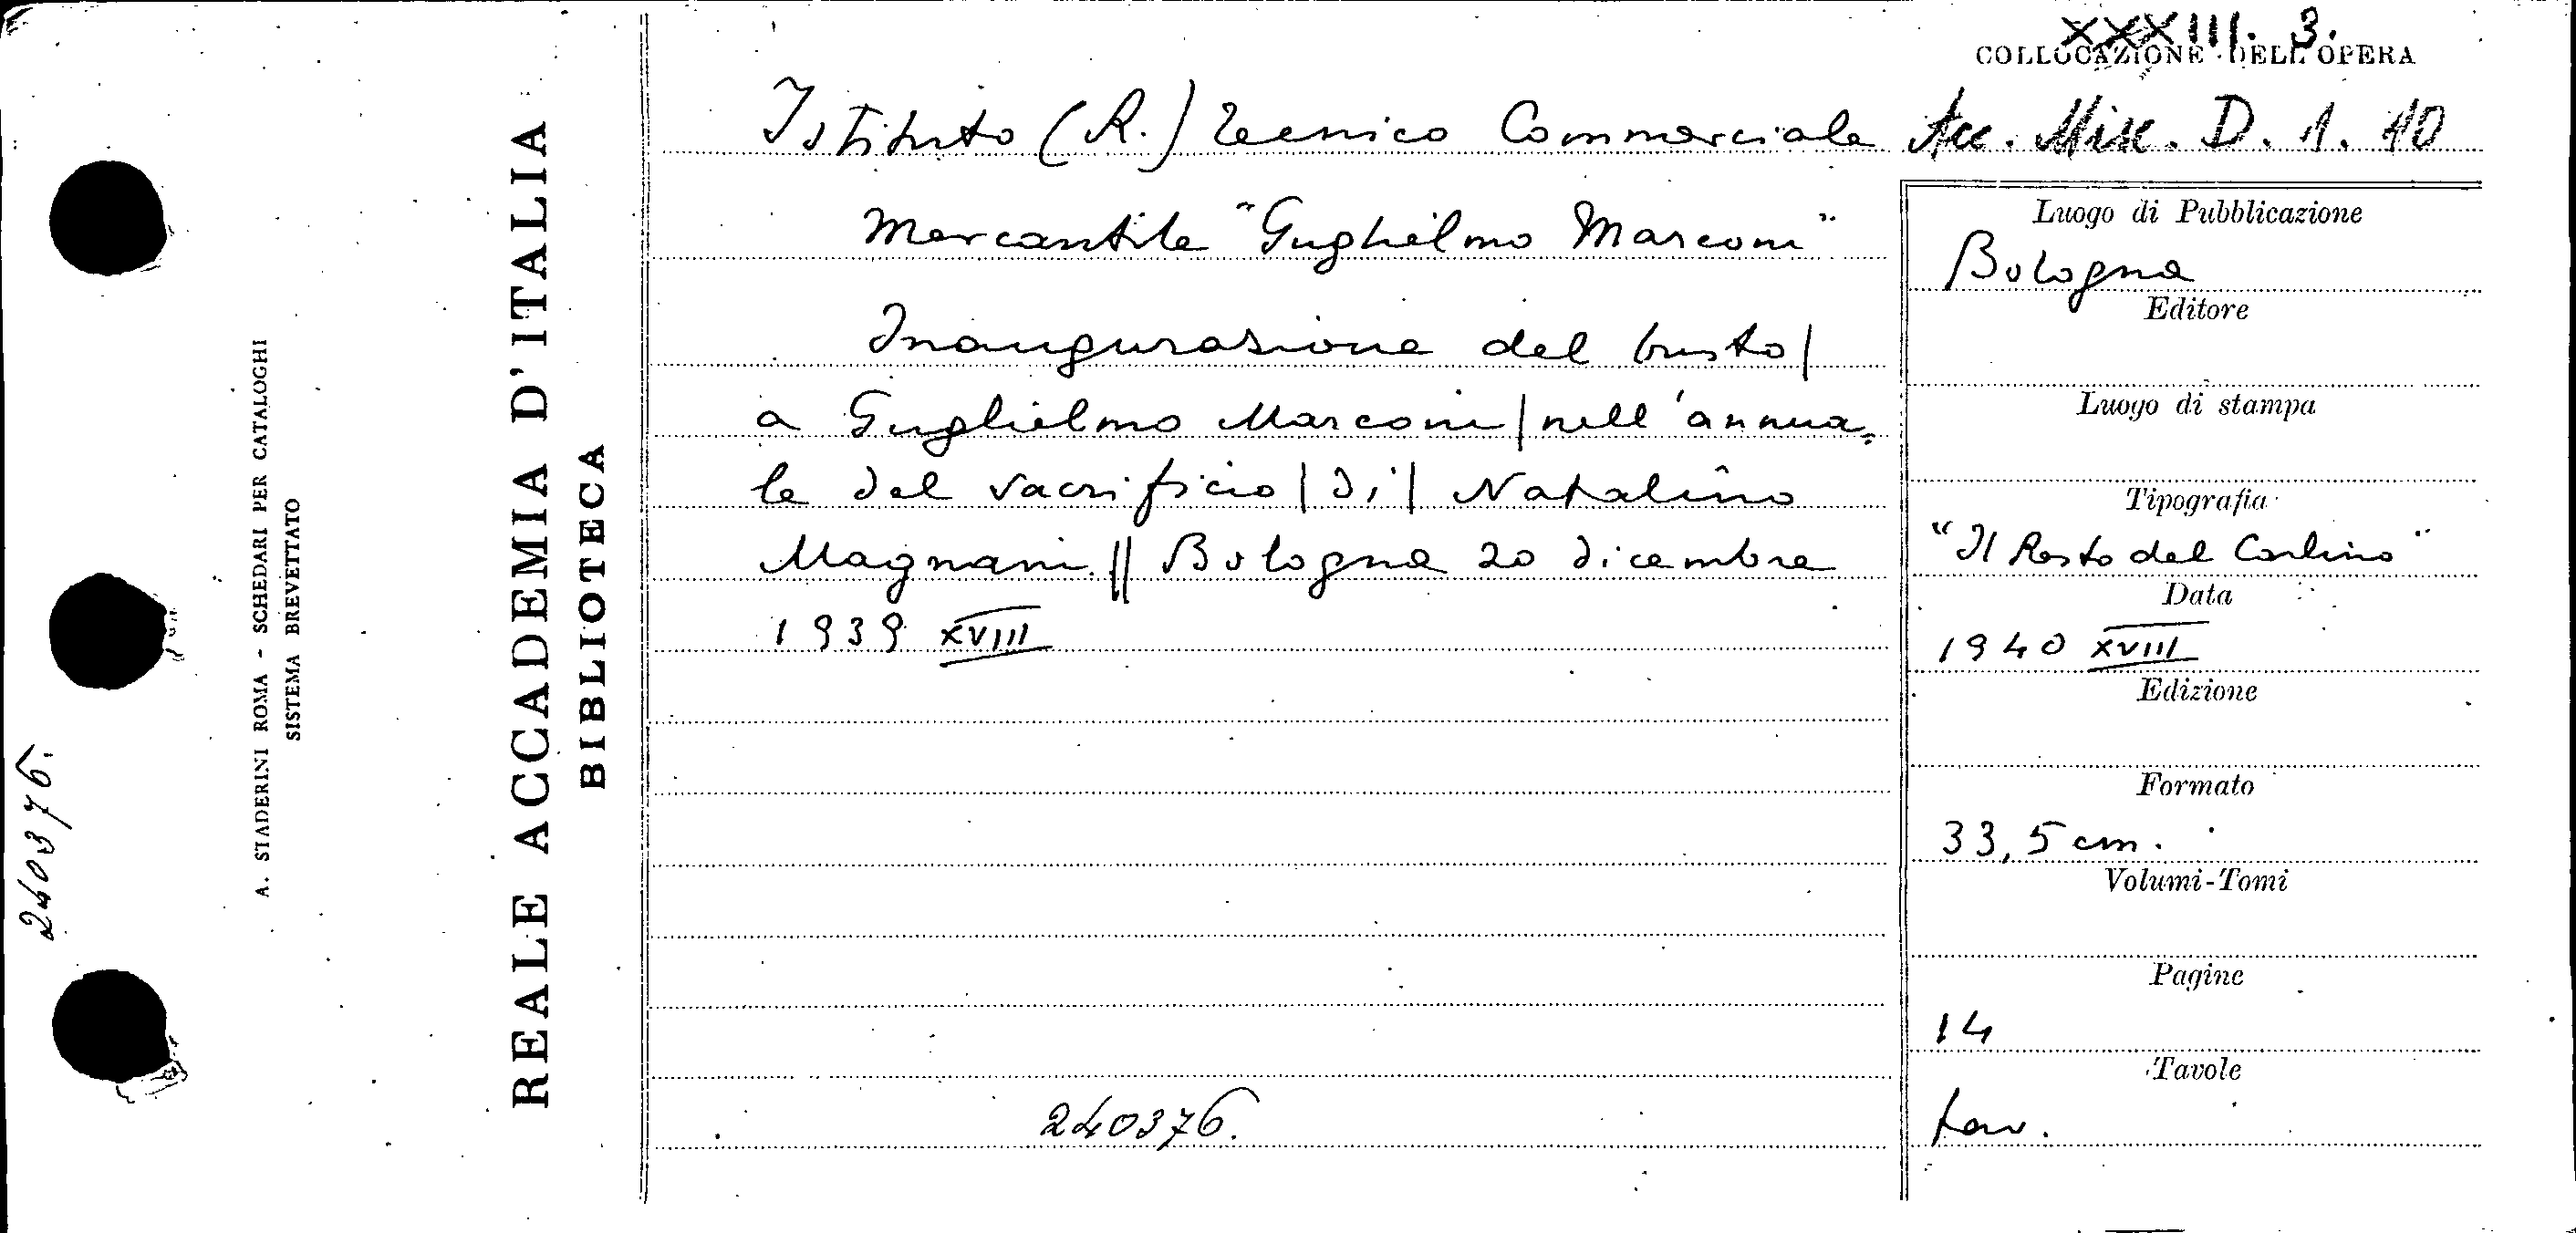 XXXIII. 3.
COLLOCAZIONE DELL'OPERA
Acc. Misc. D. 1. 10
Istituto (R.) Tecnico Commerciale
Mercantile "Guglielmo Marconi"
Inaugurazione del busto |
a Guglielmo Marconi | nell'annua=
le del sacrificio | di | Natalino
Magnani. || Bologna 20 dicembre
1939 XVIII
240376.
Luogo di Pubblicazione
Bologna
Editore
Luogo di stampa
Tipografia
"Il Resto del Carlino"
Data
1940 XVIII
Edizione
Formato
33,5 cm.
Volumi-Tomi
Pagine
14
Tavole
tav.
REALE ACCADEMIA D'ITALIA
BIBLIOTECA
A. STADERINI ROMA - SCHEDARI PER CATALOGHI
SISTEMA BREVETTATO
240376.